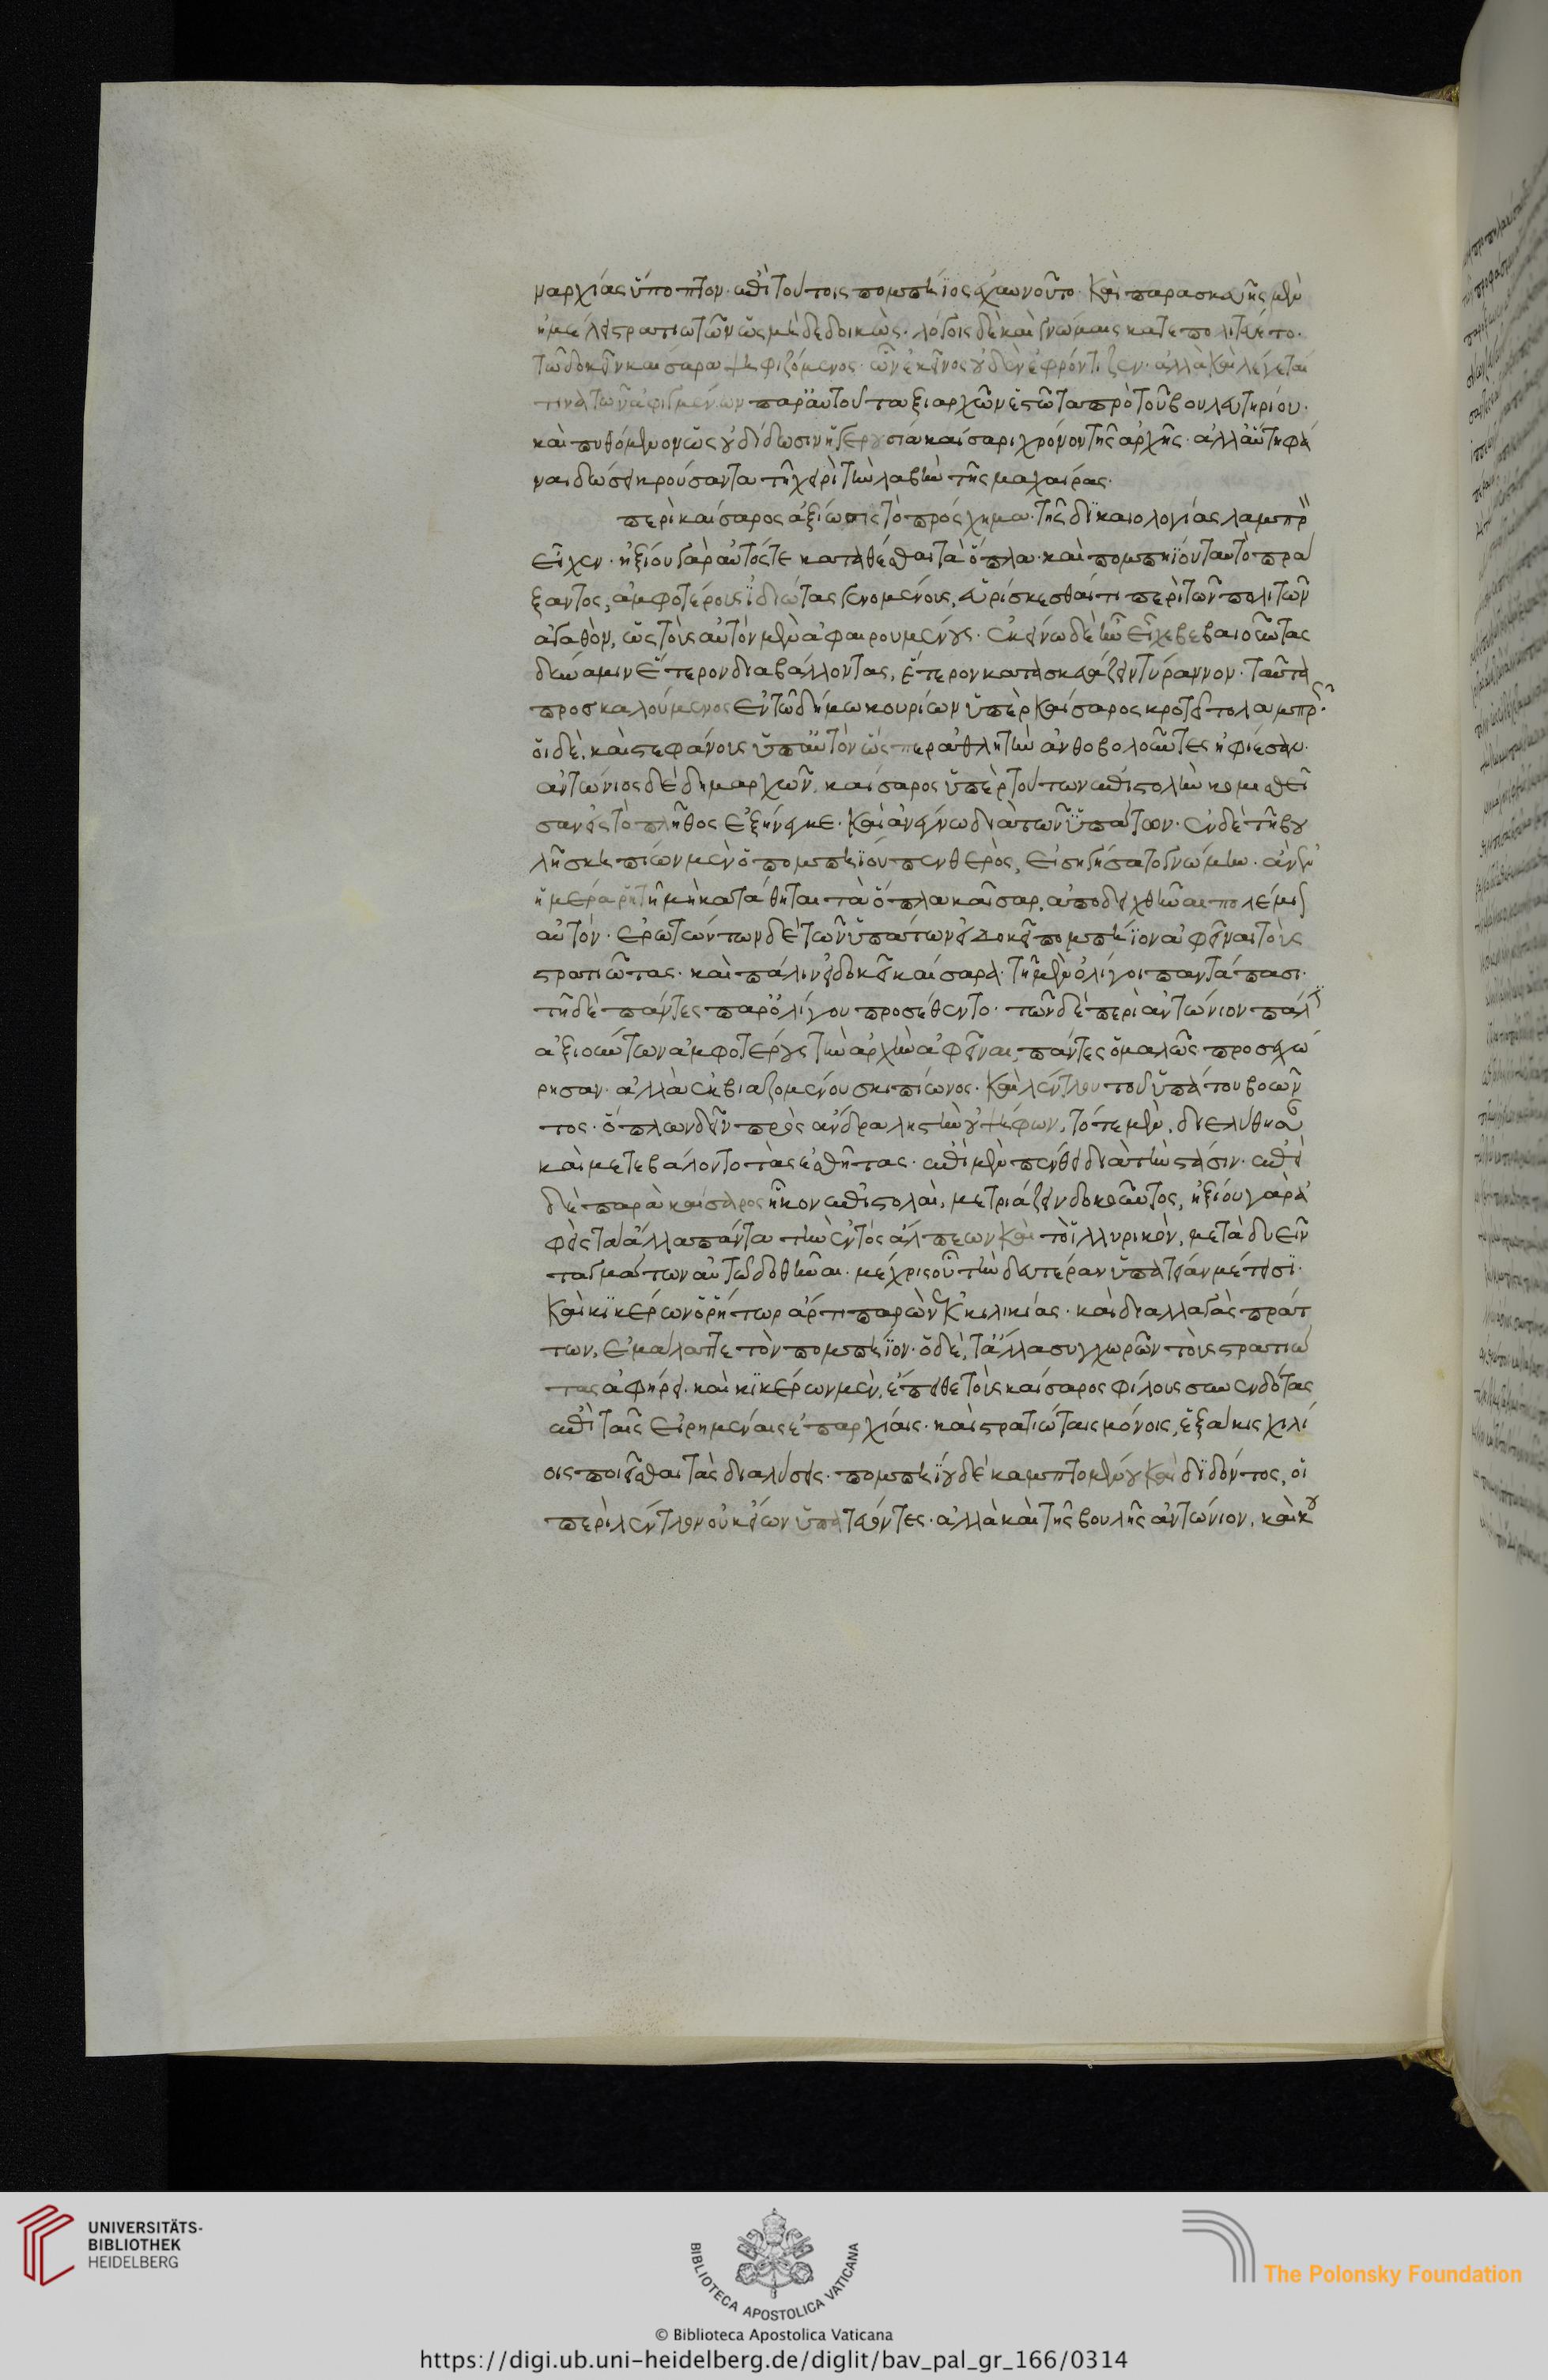 ναρχίας ὕποπτον· ἐπὶ τούτοις πομπήϊος ἐχαυνοῦτο· καὶ παρασκευῆς μὲν
ἠμέλει στρατιωτῶν ὡς μὴ δεδοικὼς· λόγοις δὲ καὶ γνώμαις κατεπολιτεύετο·
τῶ δοκεῖν καίσαρα ψηφιζόμενος· ὧν ἐκεῖνος οὐδὲν ἐφρόντιζεν· ἀλλὰ καὶ λέγεται
τινὰ τῶν ἀφιγμένων παρ' αὐτοῦ ταξιαρχῶν ἑστῶτα πρὸ τοῦ βουλευτηρίου·
καὶ πυθόμενον ὡς οὐ δίδωσιν ἡ γερουσία καίσαρι χρόνον τῆς ἀρχῆς· ἀλλ' αὕτη φά
ναι δώσει κρούσαντα τῆ χειρὶ τὴν λαβὴν τῆς μαχαίρας·
περὶ καίσαρος ἀξίωσις τὸ πρόσχημα· τῆς δικαιολογίας λαμπρὸν
εἶχεν· ἠξίου γὰρ αὐτός τε καταθέσθαι τὰ ὅπλα· καὶ πομπηΐου ταυτὸ πρά
ξαντος, ἀμφοτέρους ἰδιώτας γενομένους, εὑρίσκεσθαί τι περὶ τῶν πολιτῶν
ἀγαθὸν, ὡς τοὺς αὐτὸν μὲν ἀφαιρουμένους· ἐκείνω δὲ ἣν εἶχε βεβαιοῦντας
δύναμιν ἕτερον διαβάλλοντας, ἕτερον κατασκευάζειν τύραννον· ταῦτα
προσκαλούμενος ἐν τῶ δήμω κουρίων ὑπὲρ καίσαρος κροτεῖτο λαμπρῶς·
οἱ δὲ, καὶ στεφάνους ἐπ' αὐτὸν ὥσπερ ἀθλητὴν ἀνθοβολοῦντες ἠφίεσαν·
ἀντώνιος δὲ δημαρχῶν, καίσαρος ὑπὲρ τούτων ἐπιστολὴν κομισθεῖ
σαν εἰς τὸ πλῆθος ἐξήνεγκε· καὶ ἀνέγνω διὰ τῶν ὑπάτων· ἐν δὲ τῆ βου
λῆ σκηπίων μὲν ὁ πομπηΐου πενθερὸς, εἰσηγήσατο γνώμην· ἂν ἐν
ἡμέρα ῥητῆ μὴ κατάθηται τὰ ὅπλα καῖσαρ, ἀποδειχθῆναι πολέμιον
αὐτόν· ἐρωτώντων δὲ τῶν ὑπάτων εἰ δοκεῖ πομπήϊον ἀφεῖναι τοὺς
στρατιώτας· καὶ πάλιν εἰ δοκεῖ καίσαρα· τῆ μὲν ὀλίγοι παντάπασι·
τῆ δὲ πάντες παρ' ὀλίγου προσέθεντο· τῶν δὲ περὶ ἀντώνιον πάλιν
ἀξιούντων ἀμφοτέρους τὴν ἀρχὴν ἀφεῖναι, πάντες ὁμαλῶς προσεχώ
ρησαν· ἀλλὰ ἐκβιαζομένου σκιπίωνος· καὶ λέντλου τοῦ ὑπάτου βοῶν
τος· ὅπλων δεῖν πρὸς ἄνδρα ληστὴν οὐ ψήφων, τότε μὲν, διελύθησαν
καὶ μετεβάλοντο τὰς ἐσθῆτας· ἐπὶ μὲν πένθει διὰ τὴν στάσιν· ἐπεὶ
δὲ παρὰ καίσαρος ἧκον ἐπιστολαὶ, μετριάζειν δοκοῦντος, ἠξίου γὰρ ἀ
φεὶς τὰ ἄλλα πάντα τὴν ἐντὸς ἄλπεων καὶ τὸ ἰλλυρικὸν, μετὰ δυεῖν
ταγμάτων αὐτῶ δοθῆναι· μέχρις οὗ τὴν δευτέραν ὑπατείαν μέτεισι·
καὶ κικέρων ὁ ῥήτωρ ἄρτι παρὼν ἐκ κιλικίας· καὶ διαλλαγὰς πράτ
των, ἐμάλαττε τὸν πομπήϊον· ὁ δὲ, τἄλλα συγχωρῶν τοὺς στρατιώ
τας ἀφήρει· καὶ κικέρων μὲν, ἔπειθε τοὺς καίσαρος φίλους συνενδόντας
ἐπὶ ταῖς εἰρημέναις ἐπαρχίαις· καὶ στρατιώταις μόνοις, ἑξακισχιλί
οις ποιεῖσθαι τὰς διαλύσεις· πομπηΐου δὲ καμπτομένου καὶ διδόντος, οἱ
περὶ λέντλον οὐκ εἴων ὑπατεύοντες· ἀλλὰ καὶ τῆς βουλῆς ἀντώνιον, καὶ κου
UNIVERSITÄTS-
BIBLIOTHEK
HEIDELBERG
BIBLIOTECA APOSTOLICA VATICANA
The Polonsky Foundation
© Biblioteca Apostolica Vaticana
https://digi.ub.uni-heidelberg.de/diglit/bav_pal_gr_166/0314